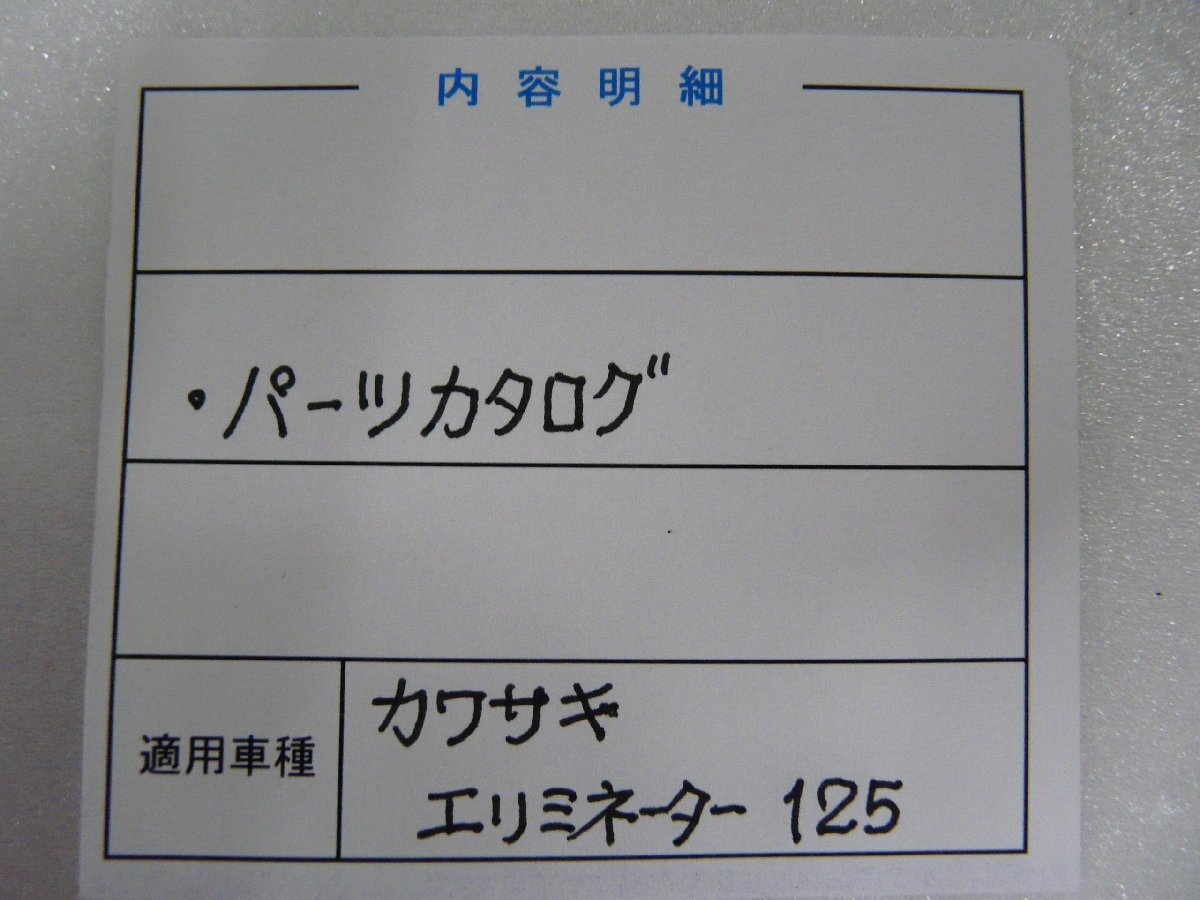 内容明細
・パーツカタログ
適用車種
カワサキ
エリミネーター 125